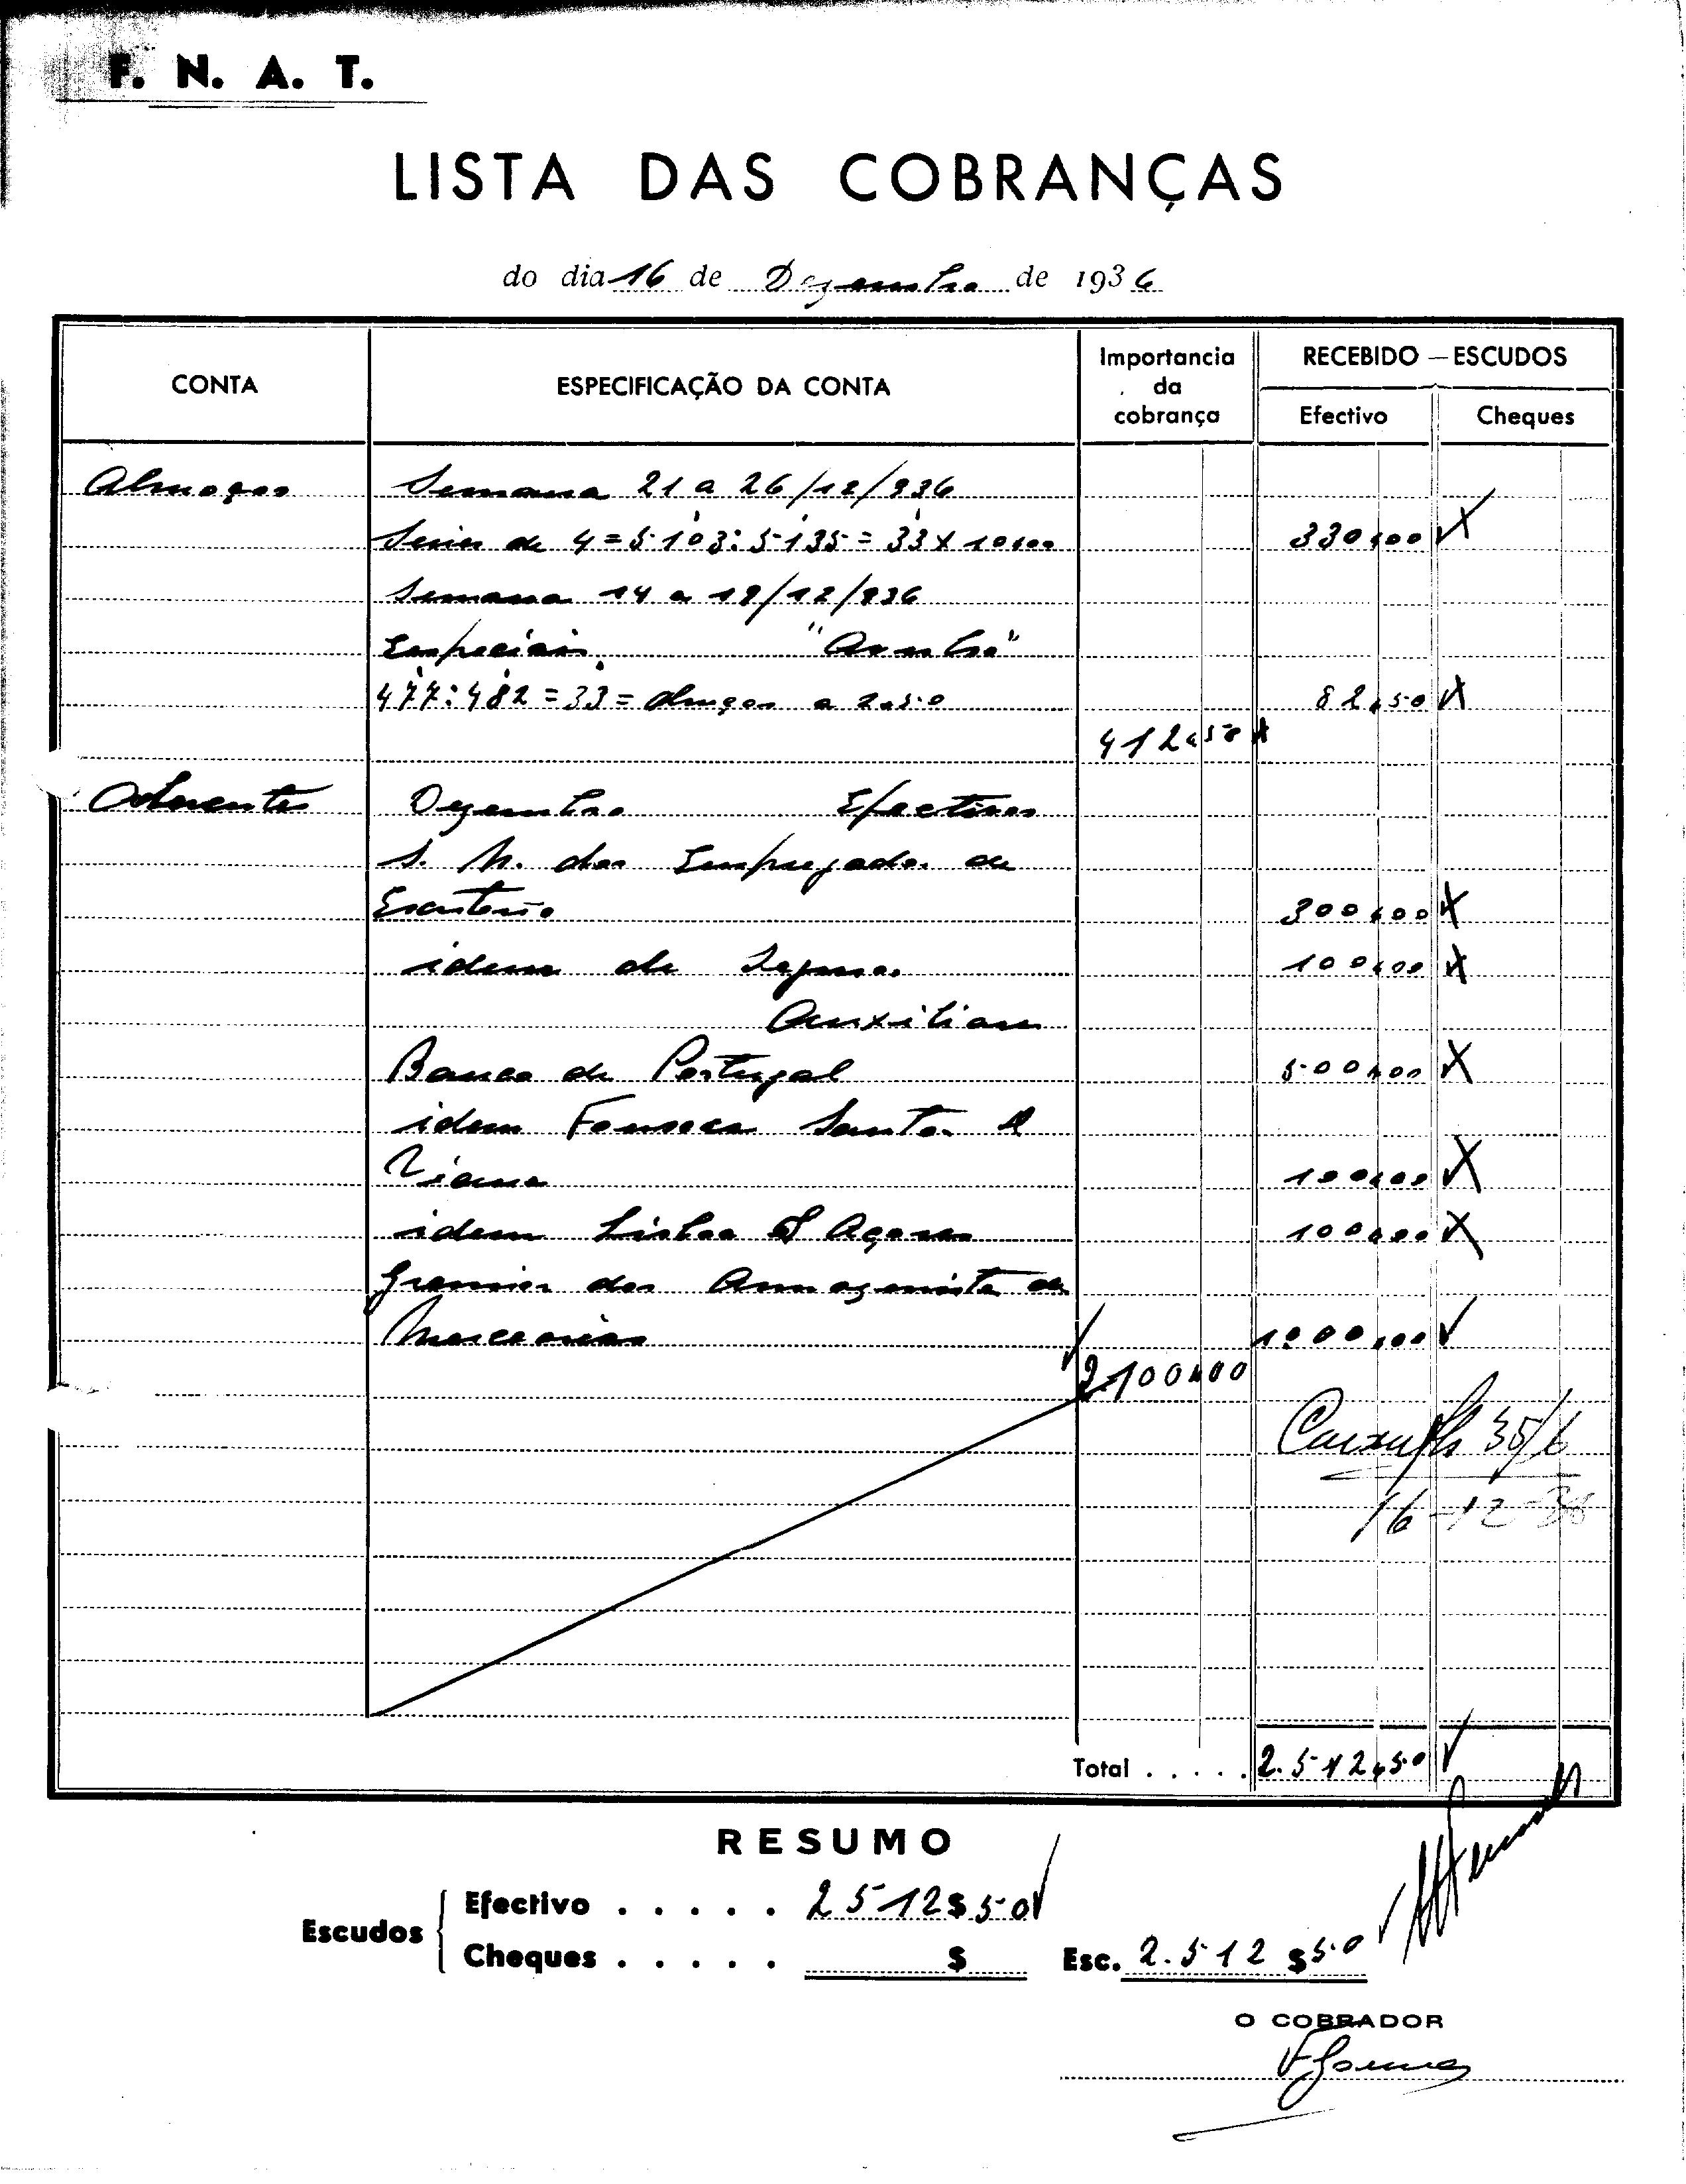 F. N. A. T.
LISTA DAS COBRANÇAS
do dia 16 de Dezembro de 1936
CONTA
ESPECIFICAÇÃO DA CONTA
Importancia da cobrança
RECEBIDO — ESCUDOS
Efectivo
Cheques
Almoços Semana 21 a 26/12/936
Series de 4 = 5103: 5135 = 33 X 10$00 330$00
Semana 14 a 19/12/936
Especiais
477: 482 = 33 = almoços a 2$50 82$50
412$50
Aderentes Dezembro Efectivos
S. N. dos Empregados de
Escritorio 300$00
idem de Seguros 100$00
Auxiliares
Banco de Portugal 500$00
idem Fonseca Santos &
Viana 100$00
idem Lisboa & Açores 100$00
Gremio dos Armazenistas de
Mercearias 1.000$00
2.100$00
35/6
16-12-36
Total . . . . . 2.512$50
RESUMO
Escudos
Efectivo . . . . . 2512$50
Cheques . . . . . $ Esc. 2.512$50
O COBRADOR